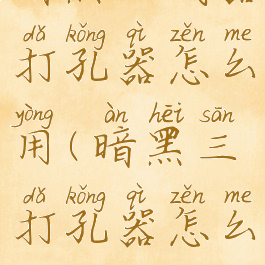 dǎ kǒng qì zěn me
打孔器怎么
yòng àn hēi sān
用(暗黑三
dǎ kǒng qì zěn me
打孔器怎么